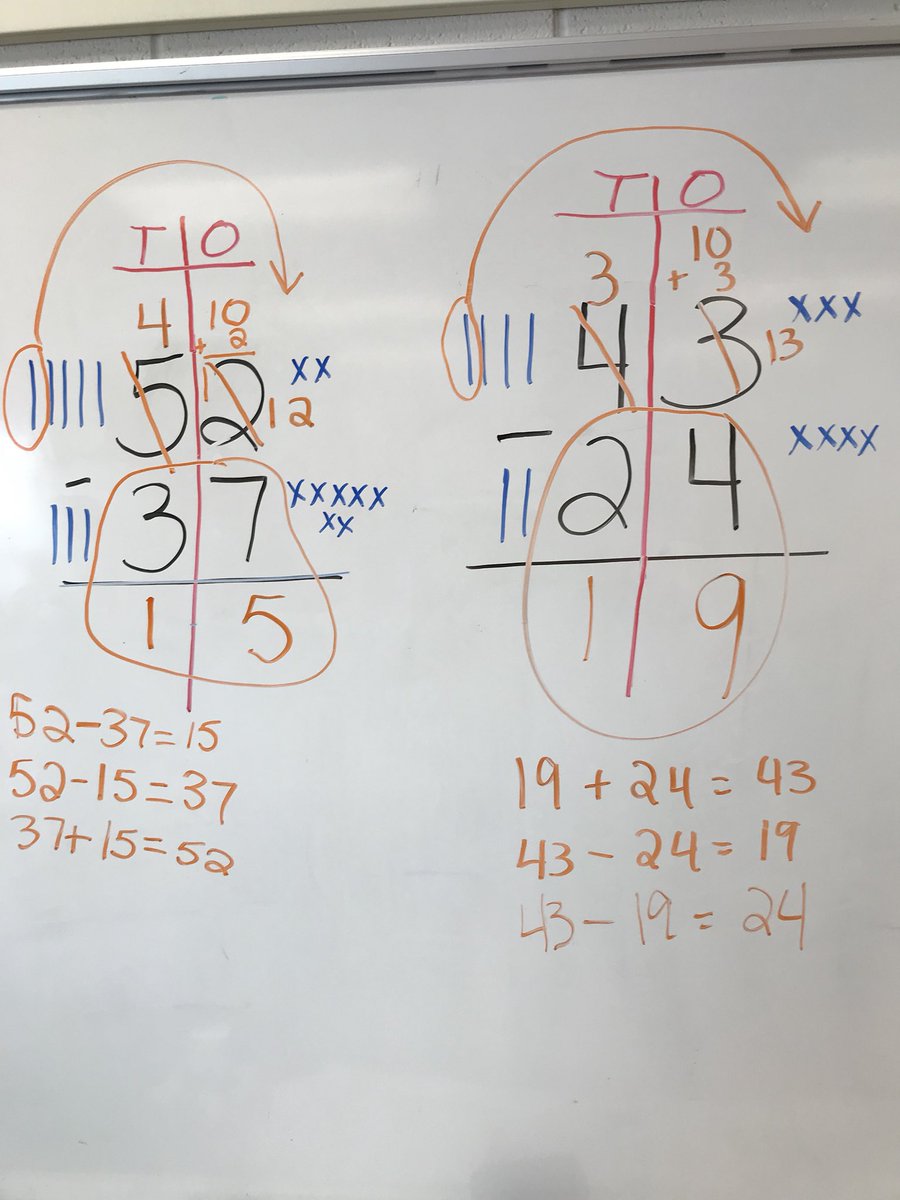 T O
4 10
+ 2
5 2 12 xx
- 3 7 xxxxx
xx
1 5
52-37=15
52-15=37
37+15=52
T O
3 10
+ 3
4 3 13 xxx
- 2 4 xxxx
1 9
19 + 24 = 43
43 - 24 = 19
43 - 19 = 24